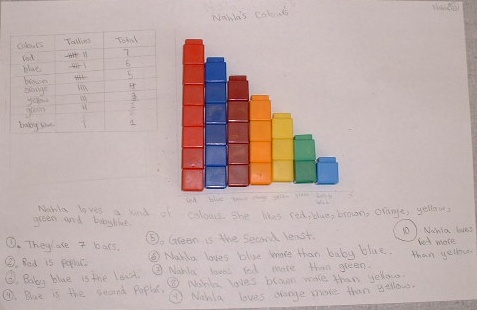 Nahla
Nahla's Colours
Colours Tallies Total
red 7
blue 6
brown 5
orange 4
yellow 3
green 2
baby blue 1
red blue brown orange yellow green baby blue
Nahla loves a kind of colours. She likes red, blue, brown, orange, yellow,
green and babyblue.
1. They're 7 bars.
2. Red is popular.
3. Baby blue is the least.
4. Blue is the second popular.
5. Green is the second least.
6 Nahla loves blue more than baby blue.
7 Nahla loves red more than green.
8 Nahla loves brown more than yellow.
9 Nahla loves orange more than yellow.
10 Nahla loves
more
than yellow.